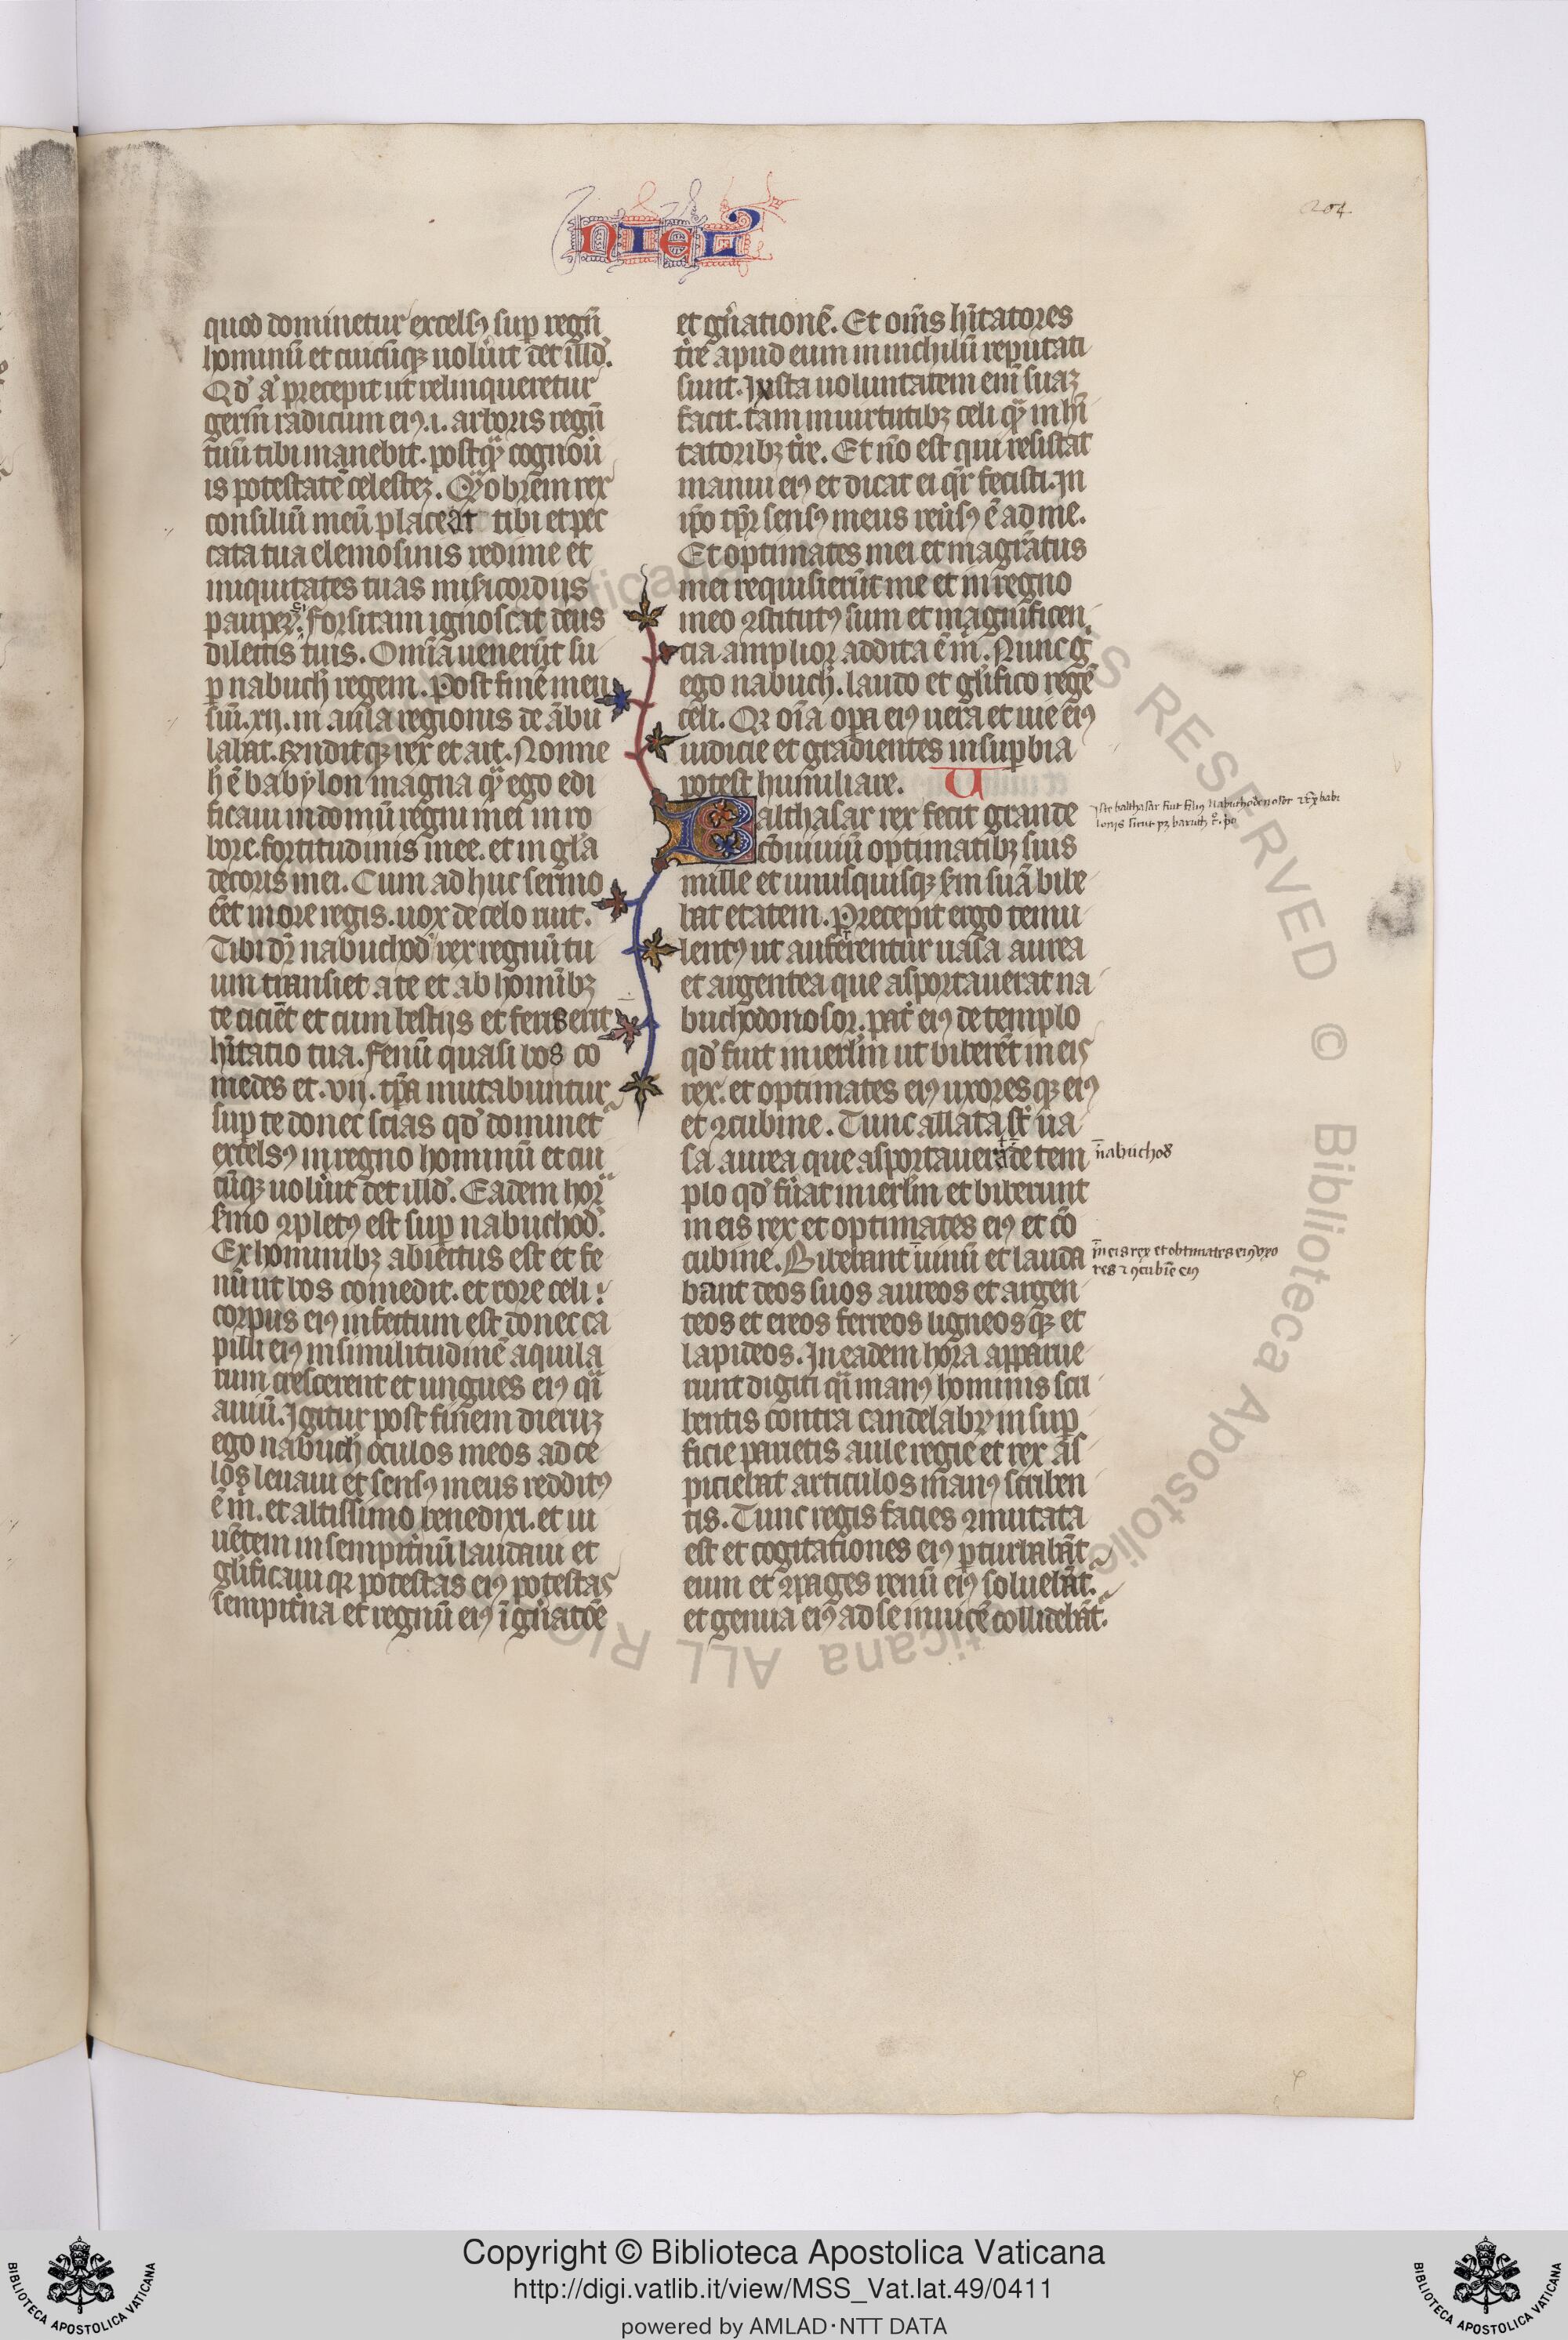 NIEL
204
quod dominetur excelsꝰ sup̱ regn̄
hominū et cuicūqꝫ uolu̾it det illd̾.
Qd̾ aͥ precepit ut relinqueretur
germ̄ radicum eiꝰ .i. arboris regnū
tuū tibi manebit. postqͣꝫ cognou̾
is potestatē celesteꝫ. Qͣꝫobrem rex
consiliū meū placeat tibi et pec
cata tua elemosinis redime et
iniquitates tuas misicordiis
pauperꝫ. forsitam ignoscat deus
dilectis tuis. Omīa uenerūt su
p̱ nabuch̾ regem. Post finē men
siū .xii. in aula regionis de ābu
labat. Rn̄ditqꝫ rex et ait. Nonne
h̾ ē babylon magna qͣꝫ ego edi
ficaui in domū regni mei in ro
bore. fortitudinis mee. et in gl̄a
decoris mei. Cum ad huc sermo
eēt in ore regis. uox de celo ruit.
Tibi dr̄ nabuchod̾ rex regnū tu
um transiet a te et ab homībꝫ
te eiciēt et cum bestiis et feris erit
h̄itatio tua. fenū quasi bos co
medes et .vii. tp̄a mutabuntur
sup̱ te donec scias qd̾ dominet᷑
excelsꝰ in regno hominū et cui
cūqꝫ uolu̾it det illd̾. Eadem hora
sermo ꝯpletꝰ est sup̱ nabuchod̾.
Ex hominibꝫ abiectus est et fe
nū ut bos comedit. et rore celi
corpus eiꝰ infectum est donec ca
pilli eiꝰ in similitudinē aquila
rum crescerent et ungues eiꝰ qͣi
auiū. Igitur post finem dieruꝫ
ego nabuch̾ oculos meos ad ce
los leuaui et sensꝰ meus redditꝰ
ē m̾. et altissimo benedixi. et ui
uētem in sempit̾nū laudaui et
gl̄ificaui qꝛ potestas eiꝰ potestas
sempit̾na et regnū eiꝰ ī gn̾atōe
et gn̾ationē. Et om̄s h̄itatores
tr̾e apud eum in nichilū reputati
sunt. Juxta uoluntatem eni̅ suaꝫ
facit. tam in uirtutibꝫ celi qͣꝫ in h̄i
tatoribꝫ tr̾e. Et nō est qui resistat
manui eiꝰ et dicat ei qͣr fecisti. In
ip̄o tp̄r sensꝰ meus reu̾sꝰ ē ad me.
Et optimates mei et magr̄atus
mei requisierūt me et in regno
meo ꝯstitutꝰ sum et magnificen
cia amplior addita ē m̾. Nunc g̾
ego nabuch̾. laudo et gl̄ifico regē
celi. Qꝛ oīa op̱a eiꝰ uera et uie eiꝰ
iudicie et gradientes in sup̱bia
potest humiliare. V
Balthasar rex fecit grande
cōuiuiū optimatibꝫ suis
mille et unusquisqꝫ sm̄ suā bibe
bat etatem. Precepit ergo temu
lentꝰ ut auferentur uasa aurea
et argentea que asportauerat na
buchodonosor. pat̾ eiꝰ de templo
qd̾ fuit in ierl̄m ut biberēt in eis
rex. et optimates eiꝰ uxoresqꝫ eiꝰ
et ꝯcubine. Tunc allata st̄ ua
sa aurea que asportauerat de tem
plo qd̾ fu̾at in ierl̄m et biberunt
in eis rex et optimates eiꝰ et cō
cubine. Bibebant uinū et lauda
bant deos suos aureos et argen
teos et ereos ferreos ligneosqꝫ et
lapideos. In eadem hora apparue
runt digiti qͣi manꝰ hominis scri
bentis contra candelabꝝ in sup̱
ficie parietis aule regie et rex as
piciebat articulos manꝰ scriben
tis. Tunc regis facies ꝯmutata
est et cogitationes eiꝰ ꝑturbabāt
eum et ꝯpages renū eiꝰ soluebāt.
et genua eiꝰ ad se inuicē collidebāt.
Iste balthasar fuit filiꝰ Nabuchodonosor et Rex babi
lonis sicut pꝫ baruch
nabuchod̾
in eis rex et obtimates eiꝰ vxo
res et ꝯcubīe eiꝰ
ALL RIGHTS RESERVED © Biblioteca Apostolica Vaticana
Copyright © Biblioteca Apostolica Vaticana
http://digi.vatlib.it/view/MSS_Vat.lat.49/0411
powered by AMLAD·NTT DATA
BIBLIOTECA APOSTOLICA VATICANA
BIBLIOTECA APOSTOLICA VATICANA